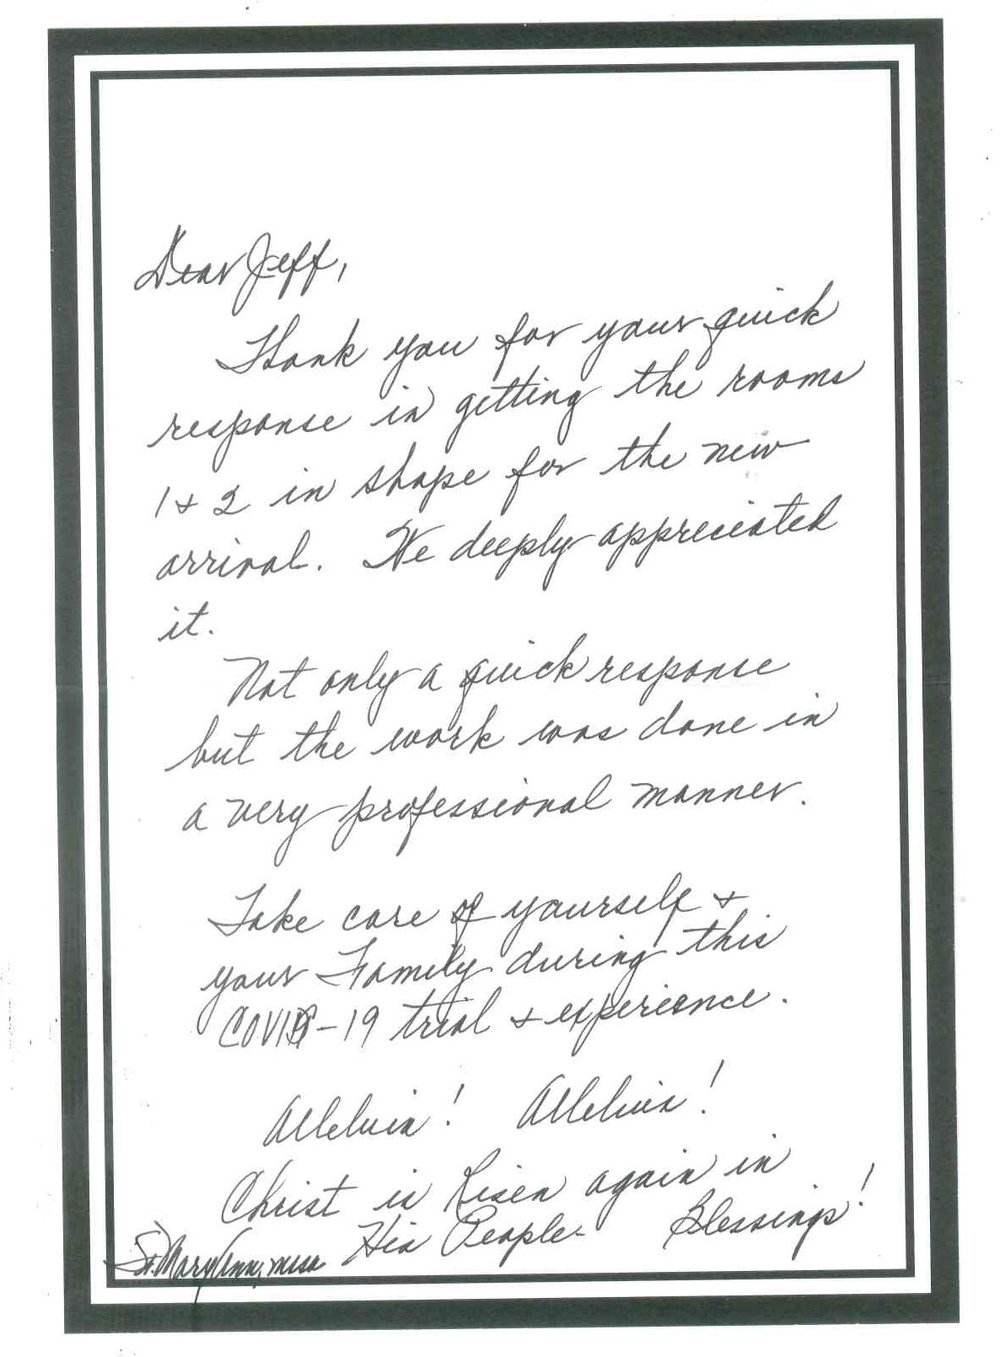 Dear Jeff,
Thank you for your quick
response in getting the rooms
1 + 2 in shape for the new
arrival. We deeply appreciated
it.
Not only a quick response
but the work was done in
a very professional manner.
Take care of yourself +
your Family during this
COVID-19 trial + experience.
Alleluia! Alleluia!
Christ is Risen again in
His People. Blessings!
Sr. Mary Ann,